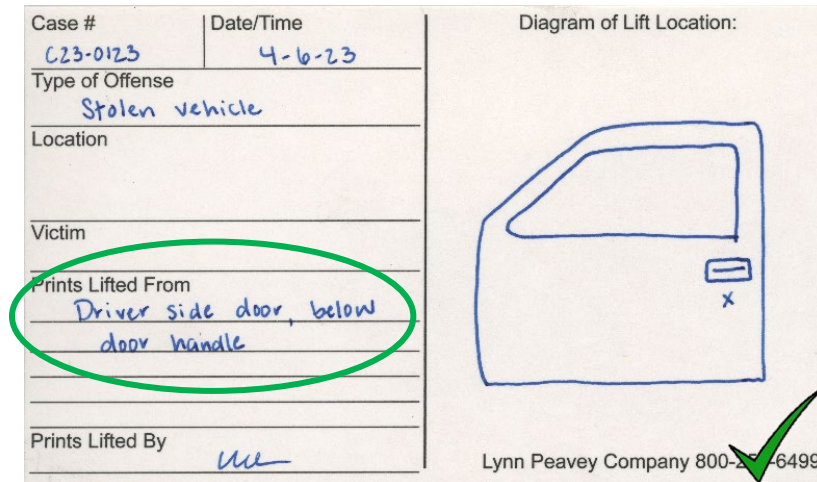 Case #
C23-0123
Date/Time
4-6-23
Type of Offense
Stolen vehicle
Location
Victim
Prints Lifted From
Driver side door, below
door handle
Prints Lifted By
Diagram of Lift Location:
x
Lynn Peavey Company 800-2 -6499